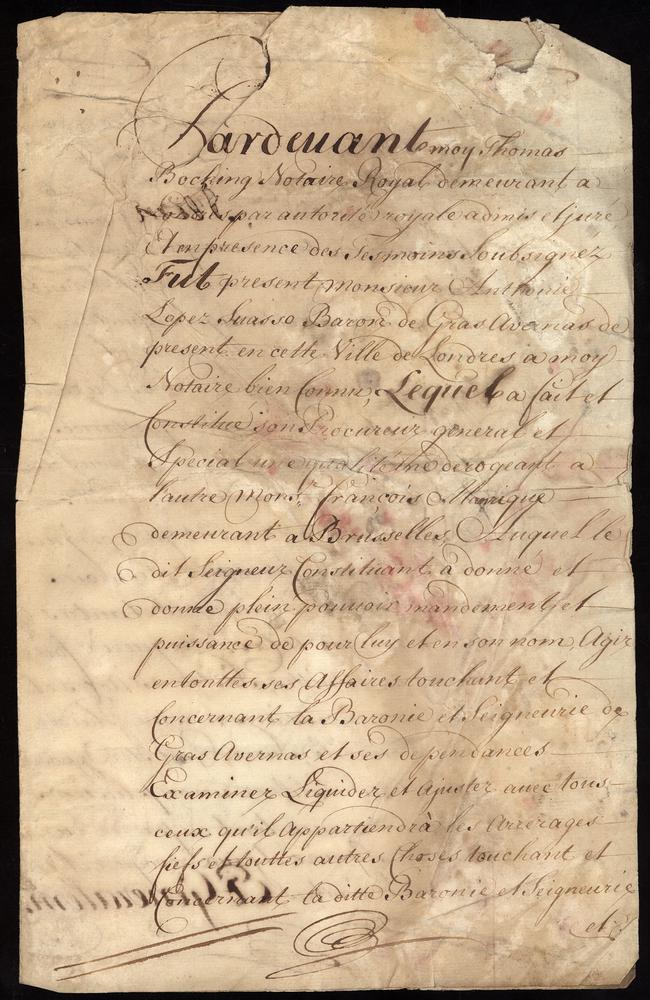 Pardeuant moy Thomas
Bocking Notaire Royal demeurant a
Londres par autorité royale admis et juré
Et en presence des Tesmoins soubsignez
Fut present Monsieur Anthonie
Lopez Suasso Baron de Gras Avernas de
present en cette Ville de Londres a moy
Notaire bien Connu, Lequel a fait et
Constitué son Procureur general et
Special une qualité ne derogeant a
l'autre Monsr. François Manrique
demeurant a Brusselles, Auquel le
dit Seigneur Constituant a donné et
donne plein pouvoir mandement et
puissance de pour luy et en son nom, Agir
en touttes ses Affaires touchant et
Concernant la Baronie et Seigneurie de
Gras Avernas et ses dependances
Examinez Liquidez et ajuster avec tous
ceux qu'il appartiendrà les Arrerages
fiefs et touttes autres Choses touchant et
Concernant la ditte Baronie et Seigneurie
et